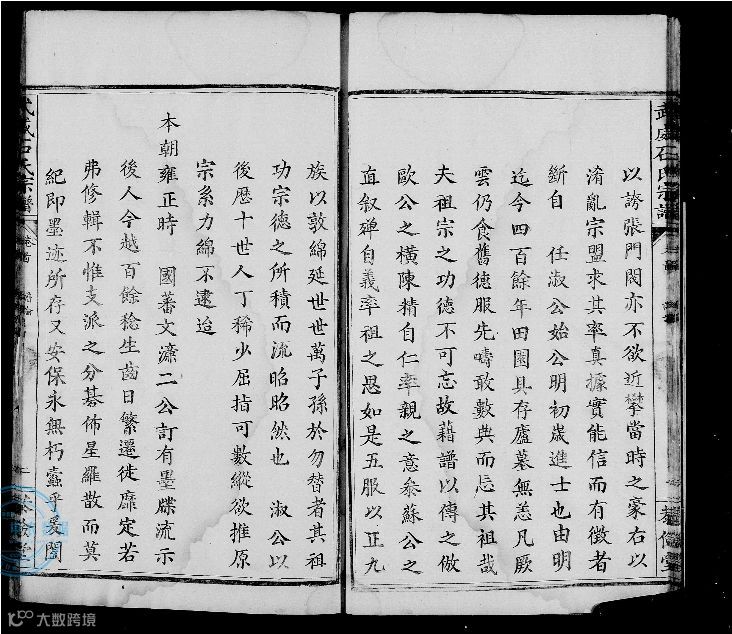 武威石氏宗譜
以誇張門閥亦不欲近攀當時之豪右以
淆亂宗盟求其率真據實能信而有徵者
斷自 任淑公始公明初歲進士也由明
迄今四百餘年田園具存廬墓無恙凡厥
雲仍食舊德服先疇敢數典而忘其祖哉
夫祖宗之功德不可忘故藉譜以傳之倣
歐公之橫陳精自仁率親之意叅蘇公之
直叙殫自義率祖之恩如是五服以正九
族以敦綿延世世萬子孫於勿替者其祖
功宗德之所積而流昭昭然也 淑公以
後歷十世人丁稀少屈指可數縱欲推原
宗系力綿不逮迨
本朝雍正時 國蕃文濂二公訂有墨牒流示
後人今越百餘稔生齒日繁遷徙靡定若
弗修輯不惟支派之分碁佈星羅散而莫
紀即墨迹所存又安保永無朽蠹乎爰闔
武威石氏宗譜
卷首
大数跨境